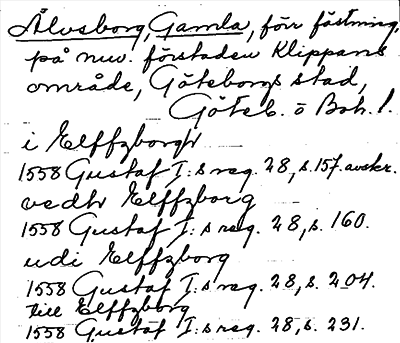 Älvsborg, Gamla, förr fästning,
på nuv. förstaden Klippans
område, Göteborgs stad,
Göteb. o Boh. l.
i Elffzborgh
1558 Gustaf I:s reg. 28, s. 157. avskr.
vedh Elffzborg
1558 Gustaf I:s reg. 28, s. 160.
udi Elffzborg
1558 Gustaf I:s reg. 28, s. 204.
till Elffzborg
1558 Gustaf I:s reg. 28, s. 231.